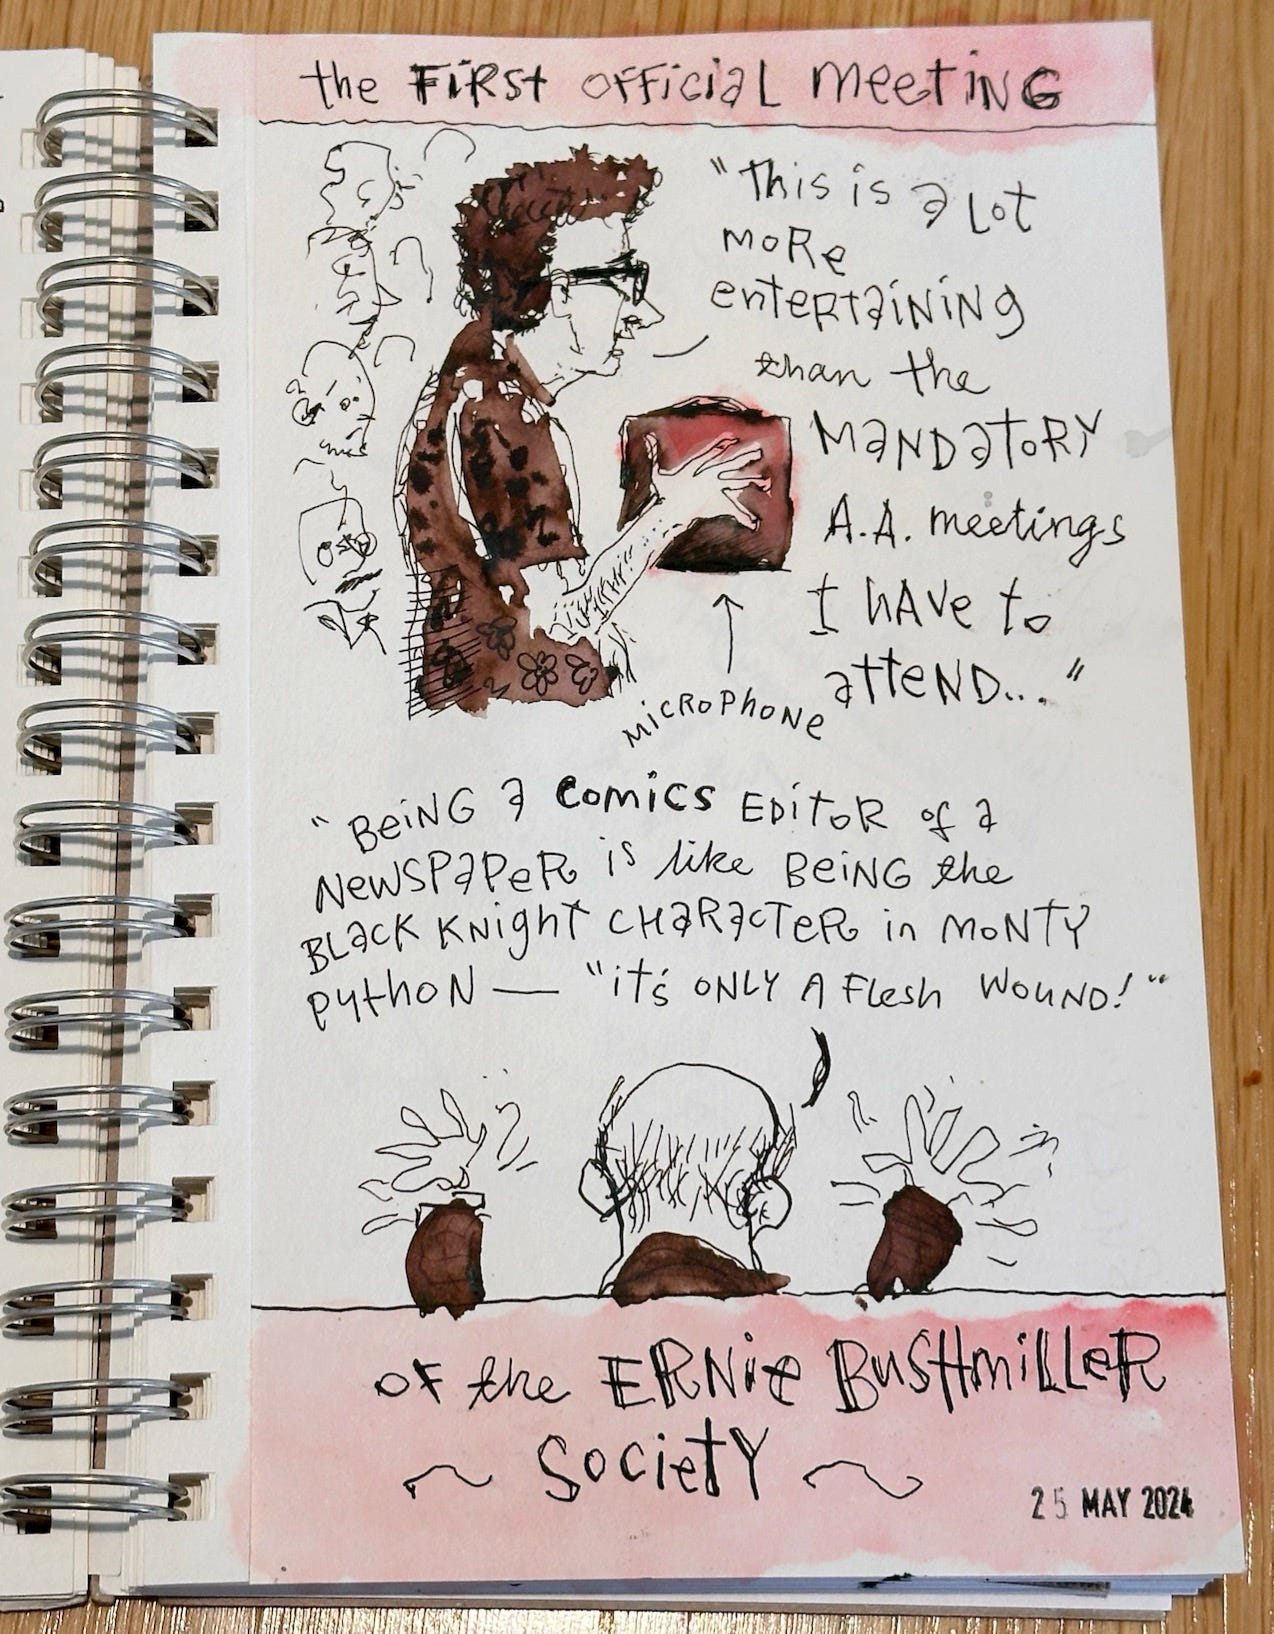 the FiRSt OFFiciaL MeetiNG
"This is a Lot
MoRe
enteRtaiNiNg
than the
MaNDatoRY
A.A. meetings
I HAVe to
atteND..."
MiCRoPhoNe
"BeiNG a Comics EDitoR of a
NewSPaPeR is like BeiNG the
BLacK KNight CHaRacTeR in MoNTY
PythoN — "it's ONLY A FLesh WouND!"
OF the ERNie BuSHmiLLeR
~ SocietY ~
25 MAY 2024